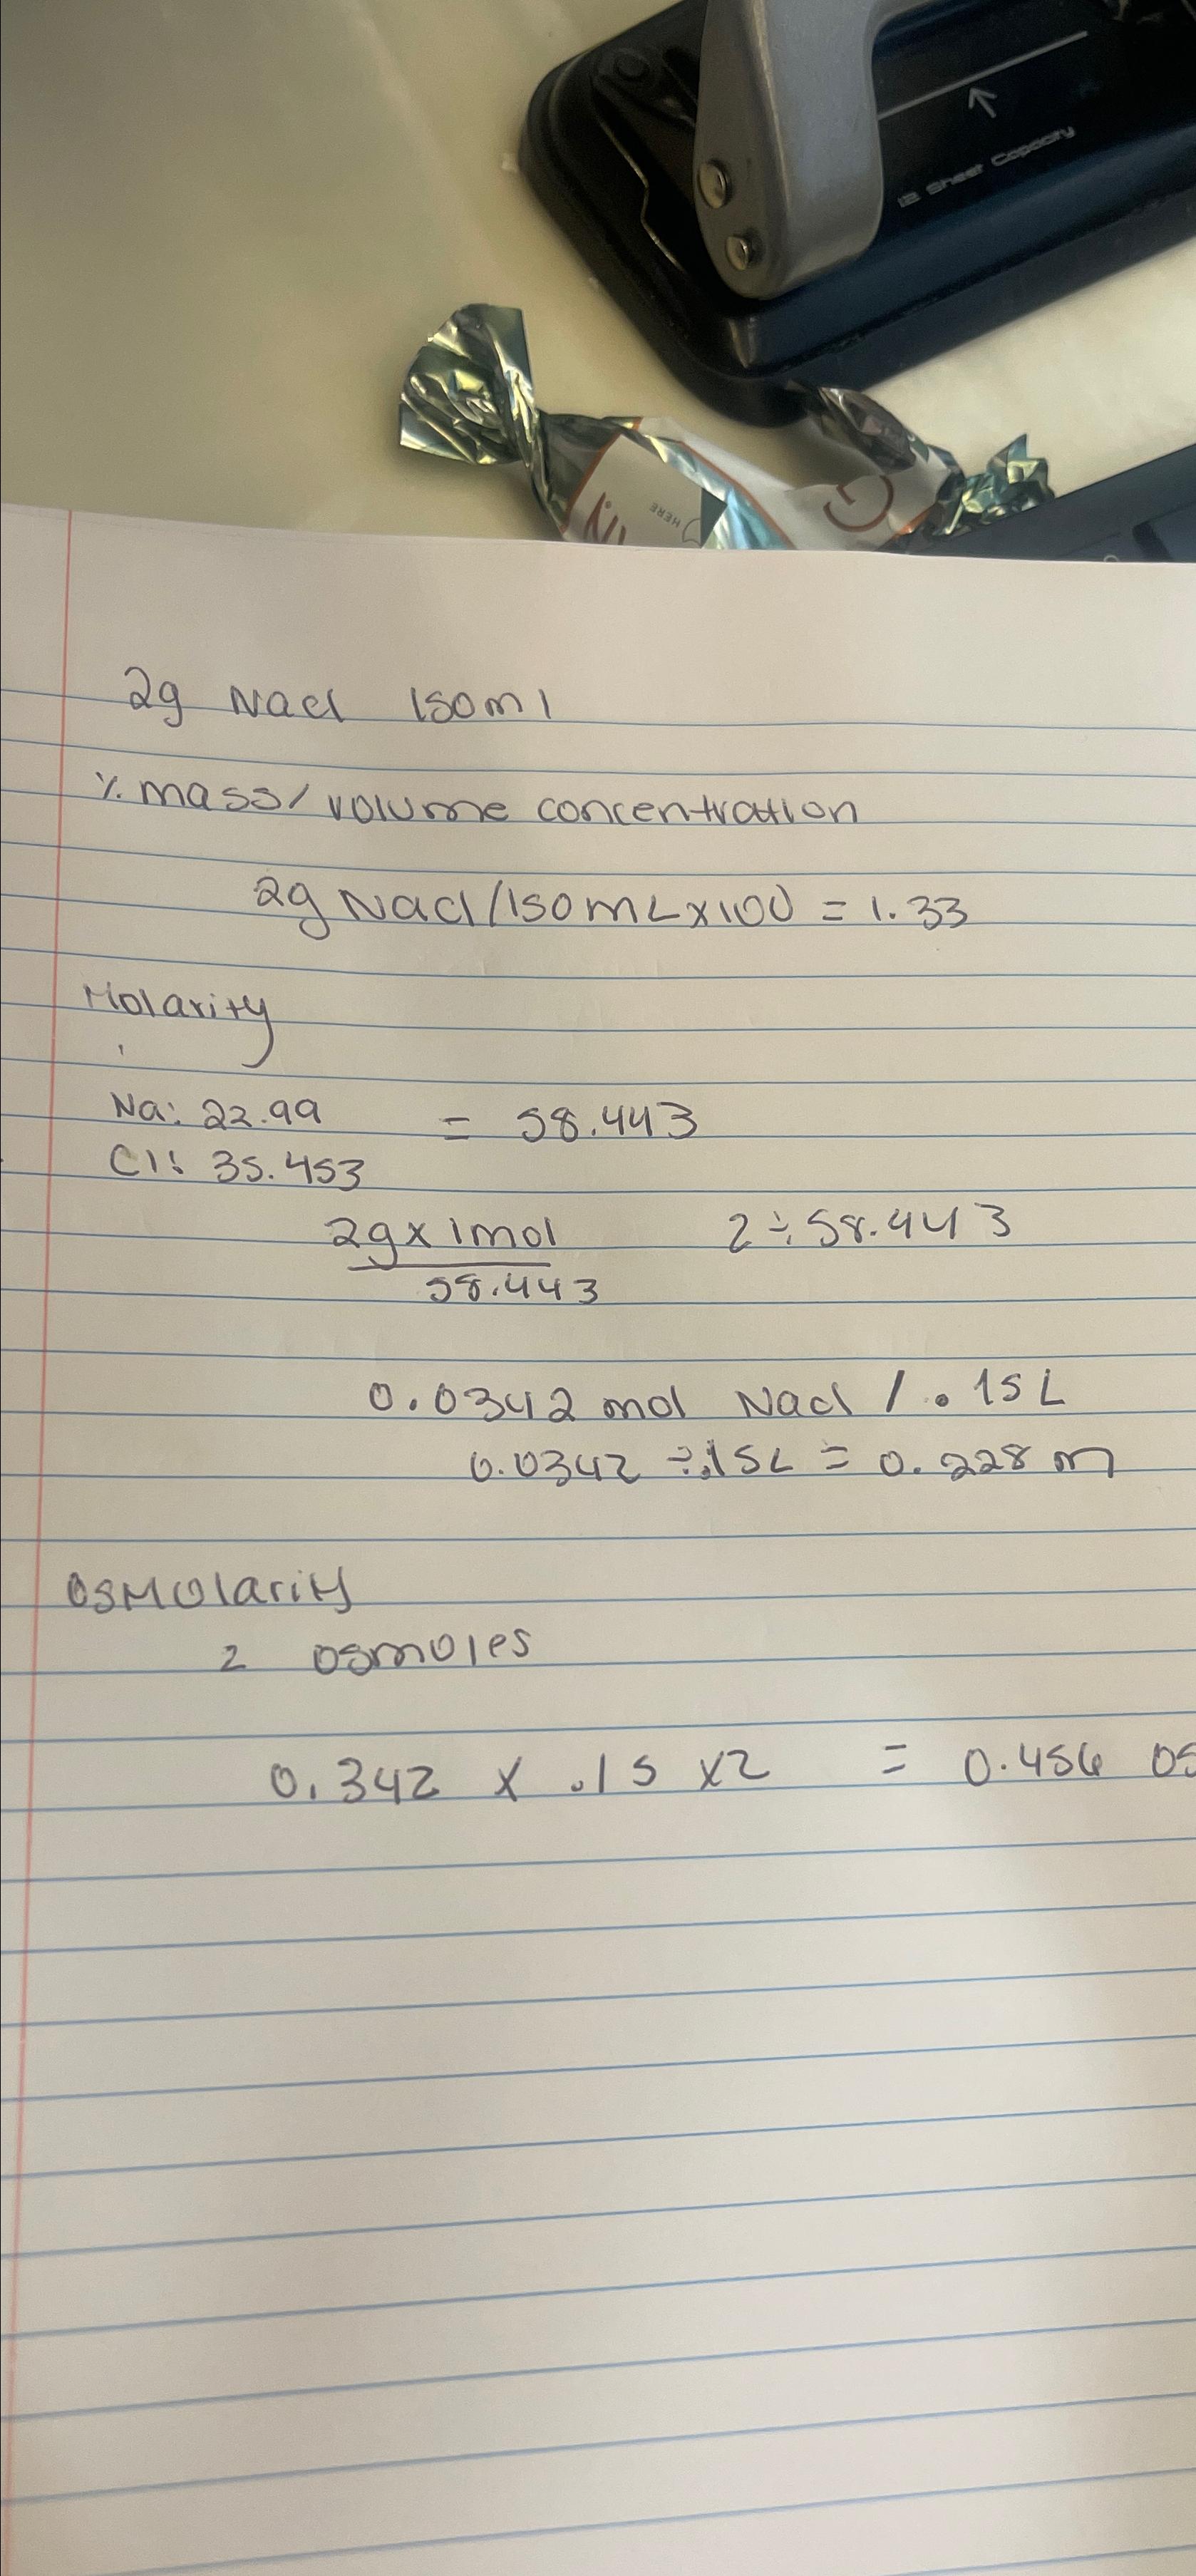 12 Sheet Capacity
HERE
2g Nacl 150ml
% mass/volume concentration
2g Nacl/150mL x100 = 1.33
Molarity
Na: 22.99 = 58.443
Cl: 35.453
2g x 1mol 2÷58.443
58.443
0.0342 mol Nacl / .15L
0.0342 ÷.15L = 0.228 m
OSMolarity
2 osmoles
0.342 x .15 x2 = 0.456 os